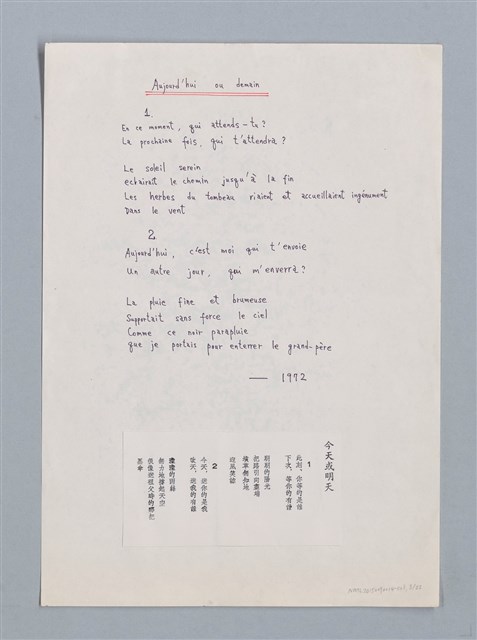 Aujourd'hui ou demain
1.
En ce moment, qui attends-tu?
La prochaine fois, qui t'attendra?
Le soleil serein
eclairait le chemin jusqu'à la fin
Les herbes du tombeau riaient et accueillaient ingénument
Dans le vent
2.
Aujourd'hui, c'est moi qui t'envoie
Un autre jour, qui m'enverra?
La pluie fine et brumeuse
Supportait sans force le ciel
Comme ce noir parapluie
que je portais pour enterrer le grand-père
— 1972
今天或明天
1
此刻,你等的是誰
下次,等你的有誰
朗朗的陽光
把路引向盡端
墳草無知地
迎風笑談
2
今天,送你的是我
改天,送我的有誰
濛濛的雨絲
無力地撐起天空
依像送祖父時的那把
黑傘